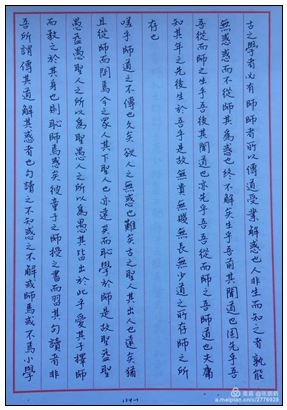 古之學者必有師師者所以傳道受業解惑也人非生而知之者孰能
無惑惑而不從師其為惑也終不解矣生乎吾前其聞道也固先乎吾
吾從而師之生乎吾後其聞道也亦先乎吾吾從而師之吾師道也夫庸
知其年之先後生於吾乎是故無貴無賤無長無少道之所存師之所
存也
嗟乎師道之不傳也久矣欲人之無惑也難矣古之聖人其出人也遠矣猶
且從師而問焉今之眾人其下聖人也亦遠矣而恥學於師是故聖益聖
愚益愚聖人之所以為聖愚人之所以為愚其皆出於此乎愛其子擇師
而教之於其身也則恥師焉惑矣彼童子之師授之書而習其句讀者非
吾所謂傳其道解其惑者也句讀之不知惑之不解或師焉或不焉小學
美篇